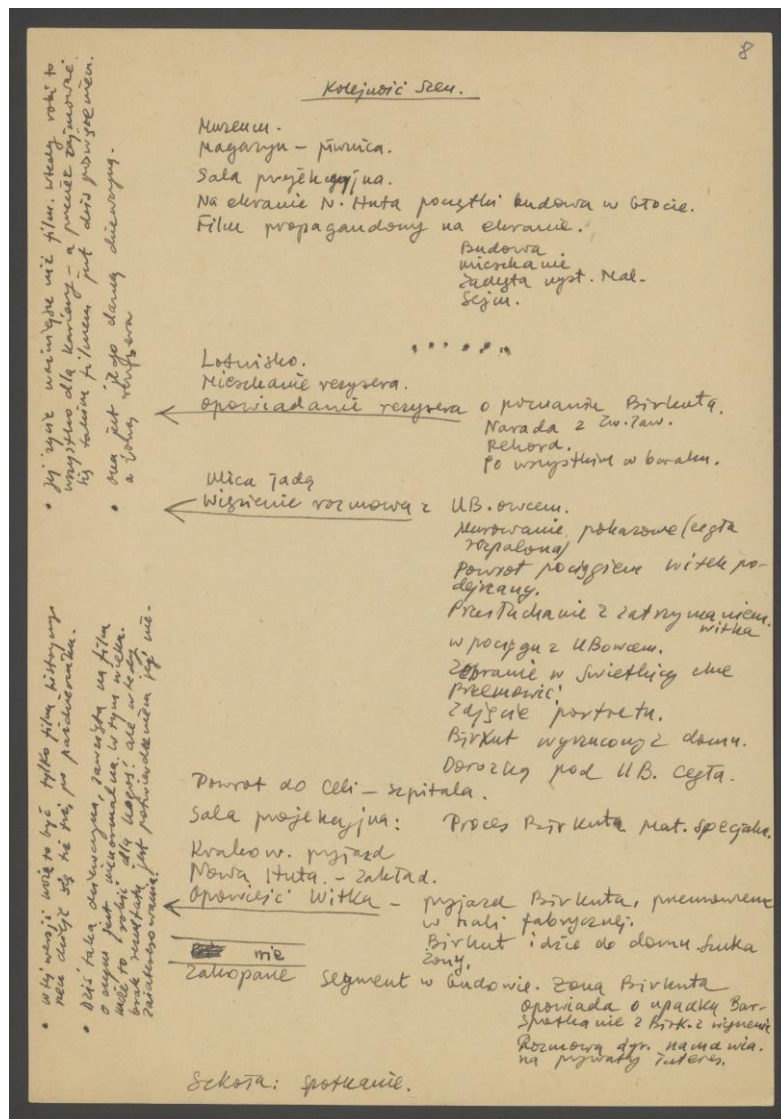 8
Kolejność Scen.
Muzeum.
Magazyn – piwnica.
Sala projekcyjna.
Na ekranie N. Huta początki budowa w błocie.
Film propagandowy na ekranie.
Budowa.
mieszkanie
Sejm.
Lotnisko.
Mieszkanie reżysera.
opowiadanie reżysera o poznaniu Birkuta.
Narada z Zw. Zaw.
Rekord.
Po wszystkim w baraku.
Ulica jadą
Więzienie rozmowa z UB.owcem.
Murowanie pokazowe (cegła
rozpalona)
Powrót pociągiem Witek po-
dejrzany.
Przesłuchanie z zatrzymaniem.
Witka
w pociągu z UBowcem.
Zebranie w świetlicy chce
przemówić
Zdjęcie portretu.
Birkut wyrzucony z domu.
Dorożką pod UB. Cegła.
Powrót do celi – szpitala.
Sala projekcyjna: Proces Birkuta Mat. Specjaln.
Kraków. przyjazd
Nowa Huta. – Zakład.
Opowieść Witka – przyjazd Birkuta, przemówienie
w hali fabrycznej.
Birkut idzie do domu. Szuka
żony.
nie
Zakopane segment w budowie. Żona Birkuta
opowiada o upadku
Spotkanie z Birk. z więzienia
Rozmowa dyr. namawia.
na prywatny interes.
Szkoła: spotkanie.
• Jej życie ważniejsze niż film. wtedy robi to
wszystko dla kariery – a przecież zajmować
się takim filmem jest dziś poświęceniem.
• Ona jest jego dawną dziewczyną.
a żoną reżysera
• W tej wersji może to być tylko film historyczny
rzecz dzieje się nie dziś, po październiku.
• Dziś taka dziewczyna, zawzięta na film
o czymś jest nienormalna w tym wieku.
może to robić dla kogoś! ale wtedy
brak rezultatu jest potwierdzeniem jej nie-
zainteresowania!